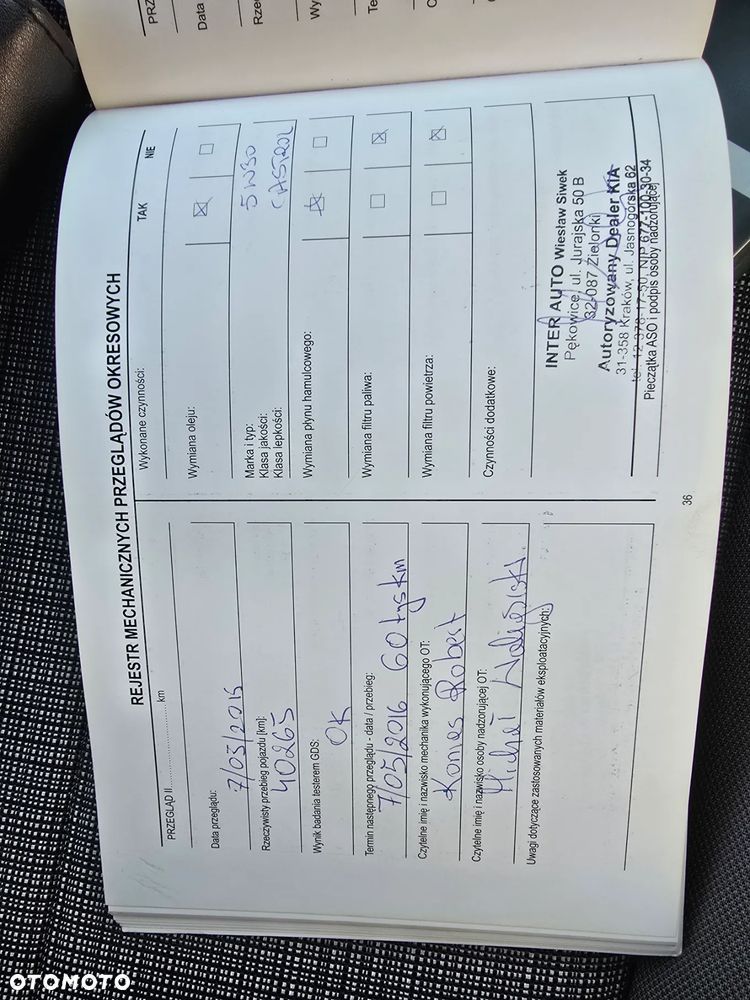 REJESTR MECHANICZNYCH PRZEGLĄDÓW OKRESOWYCH
PRZEGLĄD II.................................. km
Data przeglądu:
7/05/2015
Rzeczywisty przebieg pojazdu [km]:
40265
Wynik badania testerem GDS:
OK
Termin następnego przeglądu - data / przebieg:
7/05/2016 60 tys km
Czytelne imię i nazwisko mechanika wykonującego OT:
Robert
Czytelne imię i nazwisko osoby nadzorującej OT:
Michał
Uwagi dotyczące zastosowanych materiałów eksploatacyjnych:
Wykonane czynności:
TAK
NIE
Wymiana oleju:
Marka i typ:
5W30
Klasa jakości:
CASTROL
Klasa lepkości:
Wymiana płynu hamulcowego:
Wymiana filtru paliwa:
Wymiana filtru powietrza:
Czynności dodatkowe:
INTER AUTO Wiesław Siwek
Pękowice, ul. Jurajska 50 B
32-087 Zielonki
Autoryzowany Dealer KIA
31-358 Kraków, ul. Jasnogórska 62
NIP 677-100-30-34
Pieczątka ASO i podpis osoby nadzorującej
36
PRZ
Data
Rze
Wy
Te
OTOMOTO